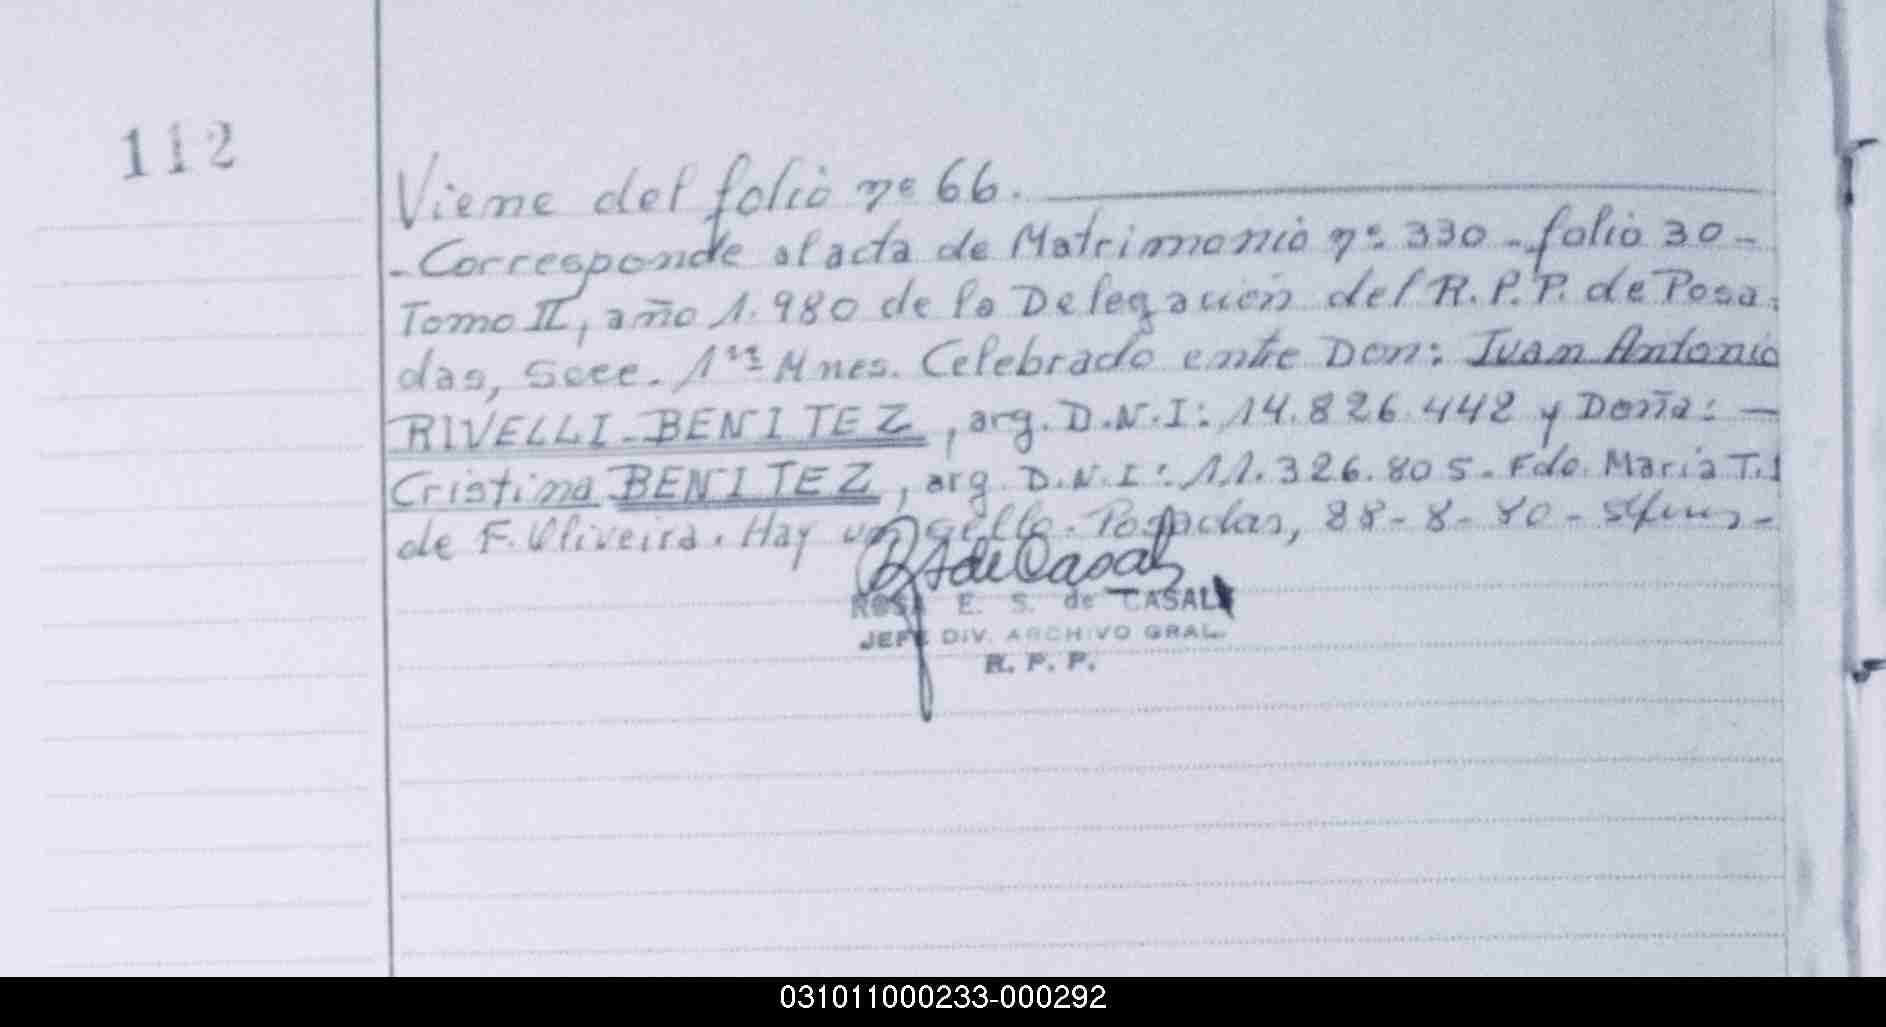 112
Viene del folio nº 66.
-Corresponde al acta de Matrimonio nº 330 - folio 30 -
Tomo II, año 1.980 de la Delegación del R.P.P. de Posa-
das, Secc. 1ra Mnes. Celebrado entre Don: Juan Antonio
RIVELLI-BENITEZ, arg. D.N.I: 14.826.442 y Doña: —
Cristina BENITEZ, arg. D.N.I: 11.326.805 - Fdo. Maria T.
de F. Oliveira. Hay un sello. Posadas, 28-8-80 -
ROSA E. S. de CASAL
JEFE DIV. ARCHIVO GRAL.
R. P. P.
031011000233-000292